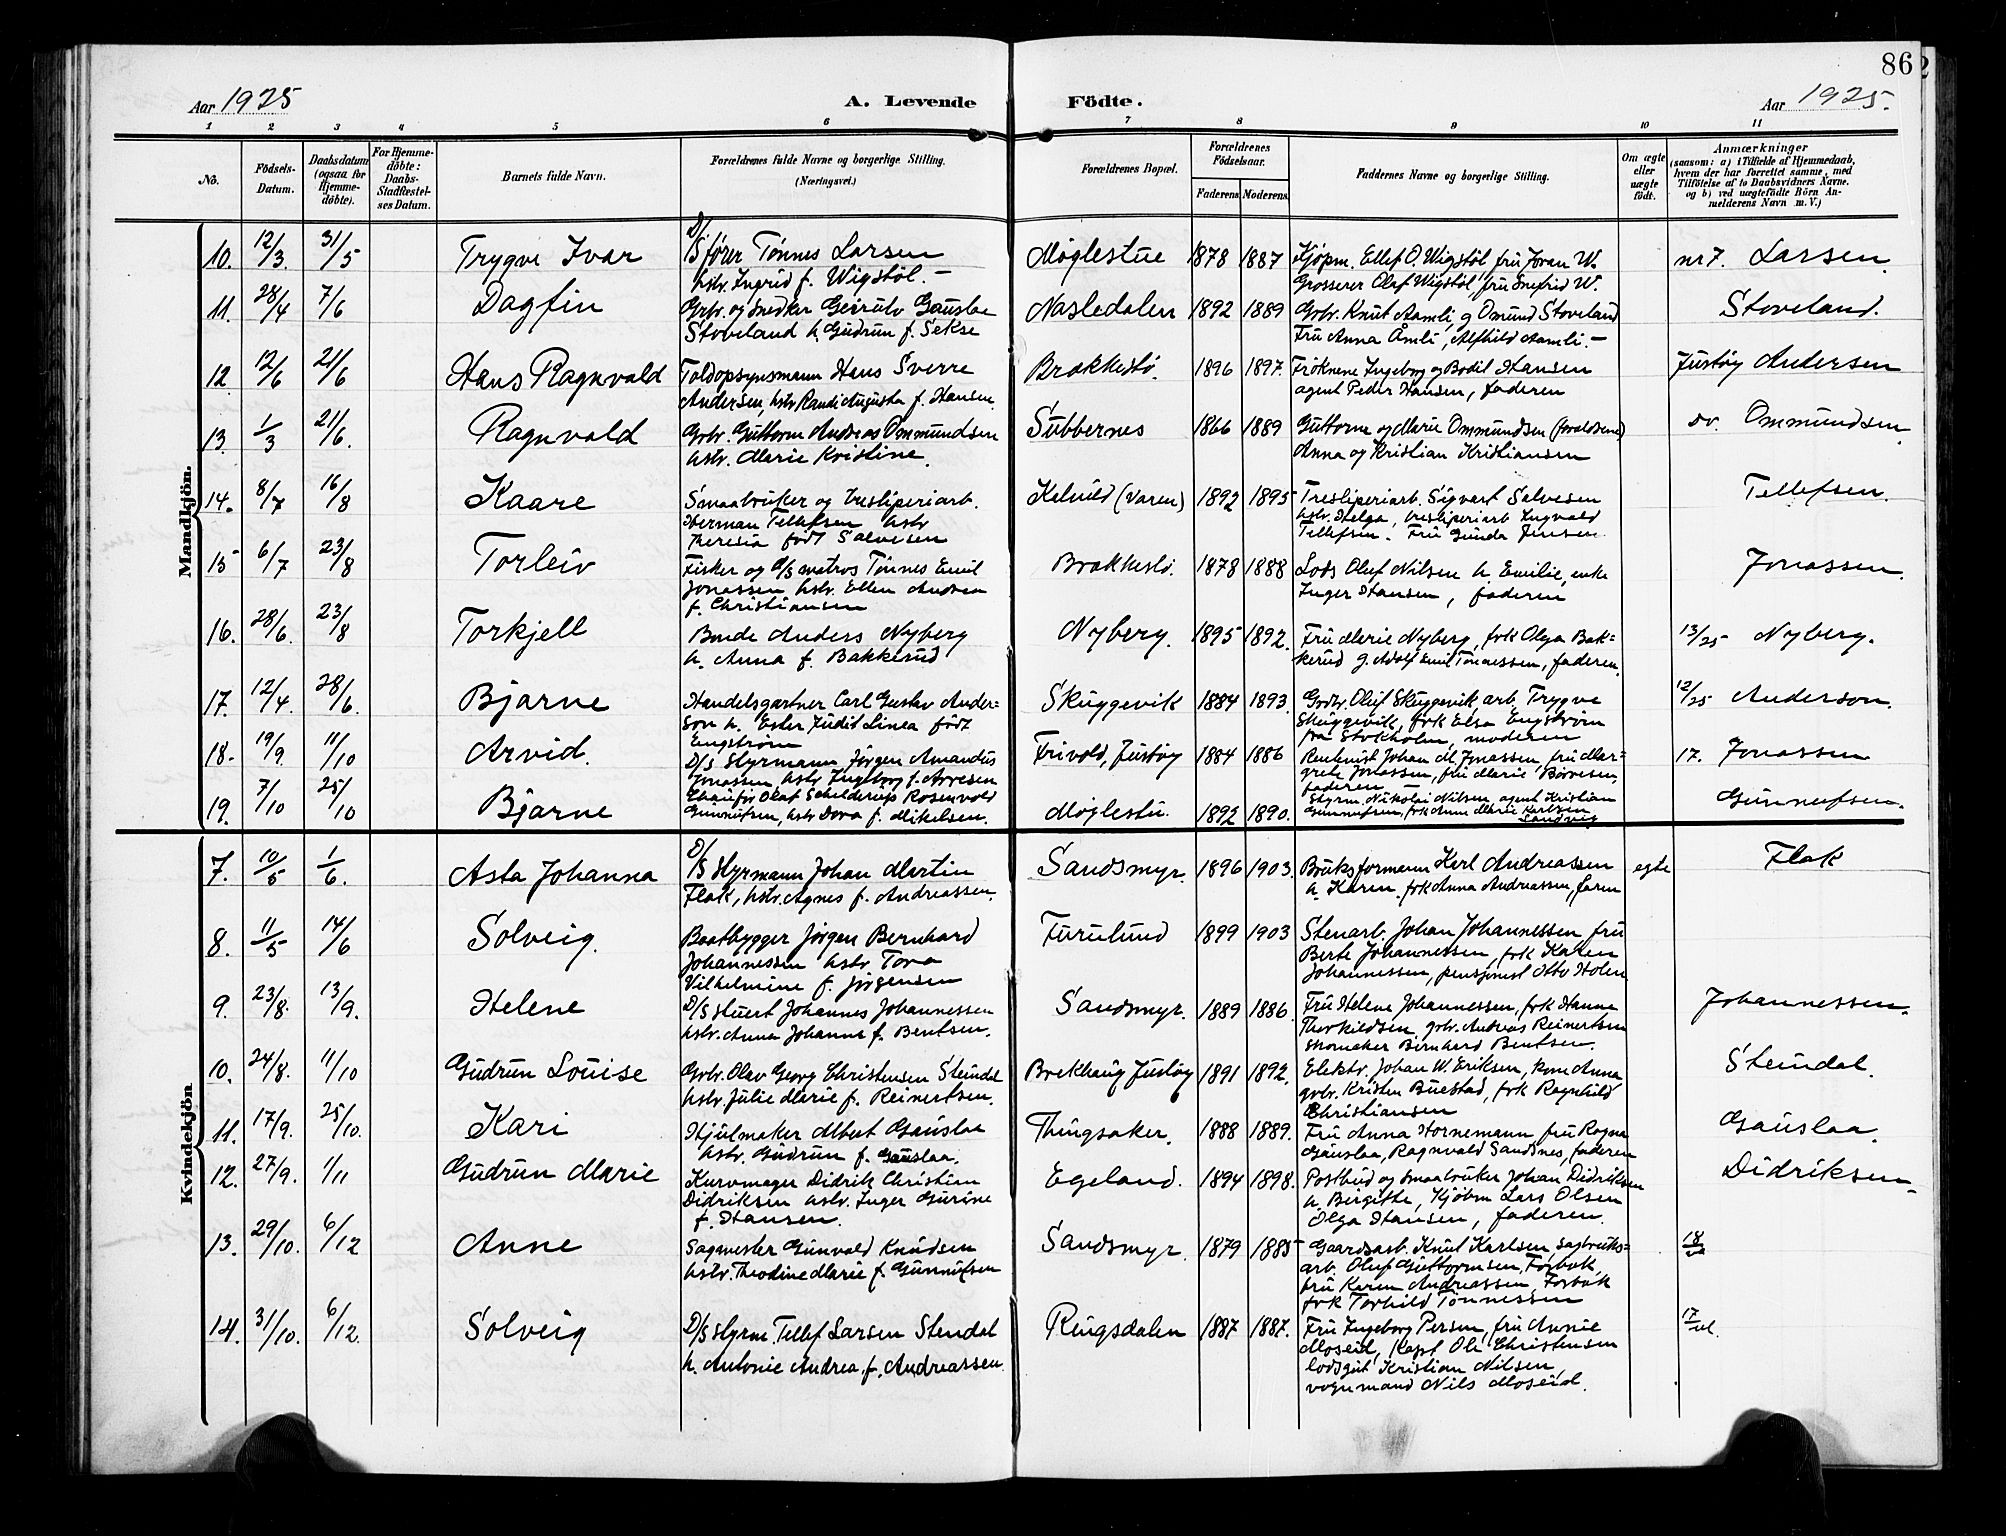 86
Aar 1925 A. Levende Födte. Aar 1925.
1 2 3 4 5 6 7 8 9 10 11
No. Födsels-Datum. Daabsdatum (ogsaa for Hjemme-döbte). For Hjemme-döbte: Daabs-Stadfæstel-ses Datum. Barnets fulde Navn. Forældrenes fulde Navne og borgerlige Stilling. (Næringsvei.) Forældrenes Bopæl. Forældrenes Födselsaar. Faderens Moderens Faddernes Navne og borgerlige Stilling. Om ægte eller uægte födt. Anmærkninger (saasom: a) i Tilfælde af Hjemmedaab, hvem der har forrettet samme, med Tilföielse af to Daabsvidners Navne. og b) ved uægtefödte Börn An-melderens Navn m. V.)
Mandkjön.
10. 12/3. 31/5 Trygve Ivar D/S fører Tønnes Larsen Møglestue 1878 1887 Kjøpm. Ellef O. Wigstøl, fru Joran W. nr 7. Larsen.
hstr. Ingrid f. Wigstøl. — Grosserer Olaf Wigstøl, fru Snefrid W.
11. 28/4 7/6 Dagfin Grbr. og snedker Geirulv Gauslaa Nasledalen 1892 1889 Grbr. Knut Aamli, g Omund Stoveland Stoveland.
Stoveland h. Gudrun f. Sekse Fru Anna Åmli, Alfhild Aamli. —
12 12/6 21/6 Hans Ragnvald Toldopsynsmann Hans Sverre Brækkestø. 1896 1897. Frøknene Ingeborg og Bodil Hansen Justøy Andersen
Andersen, hstr Randi Augusta f. Hansen. agent Peder Hansen, faderen
13. 1/3 21/6. Ragnvald Grbr. Guttorm Andreas Ommundsen Subbernes 1866 1889 Guttorm og Marie Ommundsen (forældrene) dv. Ommundsen
hstr. Marie Kristine. Anna og Kristian Kristiansen
14. 8/7 16/8 Kaare Smaabruker og tresliperiarb. Kalvild (Varen) 1892 1895 Tresliperiarb. Sigvart Salvesen Tellefsen.
Herman Tellefsen hstr hstr. Helga, tresliperiarb Ingvald
Theresia født Salvesen Tellefsen. Fru Gunda Jensen.
15 6/7 23/8 Torleiv Fisker og D/S matros Tønnes Emil Brækkestø. 1878 1888 Lods Oluf Nilsen h. Emilie, enke Jonassen.
Jonassen, hstr. Ellen Andrea Inger Hansen, faderen
f. Christiansen
16. 28/6. 23/8 Torkjell Bonde Anders Nyberg Nyberg. 1895 1892. Fru Marie Nyberg, frk Olga Bak= 13/25 Nyberg.
h. Anna f. Bakkerud kerud g. Adolf Emil Tønnessen, faderen.
17. 12/4. 28/6. Bjarne Handelsgartner Carl Gustav Ander= Skuggevik 1884 1893. Grbr. Oluf Skuggevik, arb. Trygve 12/25 Anderson.
son h. Ester Judit Linea født Skuggevik, frk Elsa Engstrøm
Engstrøm fra Stokholm, moderen
18. 19/9. 11/10 Arvid. D/S Styrmann Jørgen Amandus Frivold, Justøy 1884 1886 Rentenist Johan M. Jonassen, fru Mar= 17. Jonassen
Jonassen, hstr Ingeborg f. Arvesen grete Jonassen, fru Marie Børresen,
faderen —
19. 7/10 25/10 Bjarne Chauffør Olaf Schelderups Rosenvold Møglestu. 1892 1890. Styrm. Nikolai Nilsen, agent Kristian Gunnufsen.
Gunnufsen, hstr Dora f. Mikelsen. Gunnufsen, frk Anne Marie Karlsen
Sandvig
Kvindekjön
7. 10/5 1/6. Asta Johanna D/S Styrmann Johan Martin Sandsmyr. 1896 1903. Bruksformann Karl Andreassen egte Flak
Flak, hstr. Agnes f. Andreassen. h. Karen, frk Anna Andreassen, faren
8. 11/5 14/6 Solveig. Baatbygger Jørgen Bernhard Furulund 1899 1903 Stenarb. Johan Johannessen fru
Johannessen hstr Tora Berte Johannessen, frk Karen
Vilhelmine f. Jørgensen Johannessen, pensjonist Otto Holen
9. 23/8. 13/9. Helene D/S stuert Johannes Johannessen Sandsmyr. 1889 1886. Fru Helene Johannessen, frk Hanna Johannessen.
hstr. Anna Johanne f. Bentsen. Thorkildsen, grbr. Andreas Reinertsen
skomaker Bernhard Bentsen.
10. 24/8. 11/10 Gudrun Louise Grbr. Olav Georg Christensen Steindal Brekhaug Justøy 1891 1892. Elektr. Johan W. Eriksen, kone Anna Steindal.
hstr. Julie Marie f. Reinertsen. grbr. Kristen Buestad, frk Ragnhild
Christiansen
11. 17/9. 25/10. Kari Hjulmaker Albert Gauslaa Thingsaker. 1888 1889. Fru Anna Hornemann fru Ragna Gauslaa.
hstr. Gudrun f. Gauslaa. Gauslaa, Ragnvald Sandsnes, faderen
12. 27/9. 1/11 Gudrun Marie Kurvmager Didrik Christian Egeland. 1894 1898. Postbud og smaabruker Johan Didriksen Didriksen.
Didriksen hstr. Inger Gurine h. Birgitte, Kjøbm Lars Olsen
f. Hansen. Olga Hansen, faderen.
13. 29/10. 6/12 Anne Sagmester Gunvald Knudsen Sandsmyr. 1879 1885 Gaardsarb. Knut Karlsen, sagbruks= 18
hstr. Theodine Marie f. Gunnufsen arb. Oluf Guttormsen, Fosbæk,
fru Karen Andreassen, Fosbæk
frk Torhild Tønnessen
14. 31/10. 6/12. Solveig D/S styrm. Tellef Larsen Stendal Ringsdalen 1887 1887. Fru Ingeborg Persen, fru Annie 17
h. Antonie Andrea f. Andreassen. Moseid, Kapt Ole Christensen
lodsgut Kristian Nilsen,
vognmand Nils Moseid.